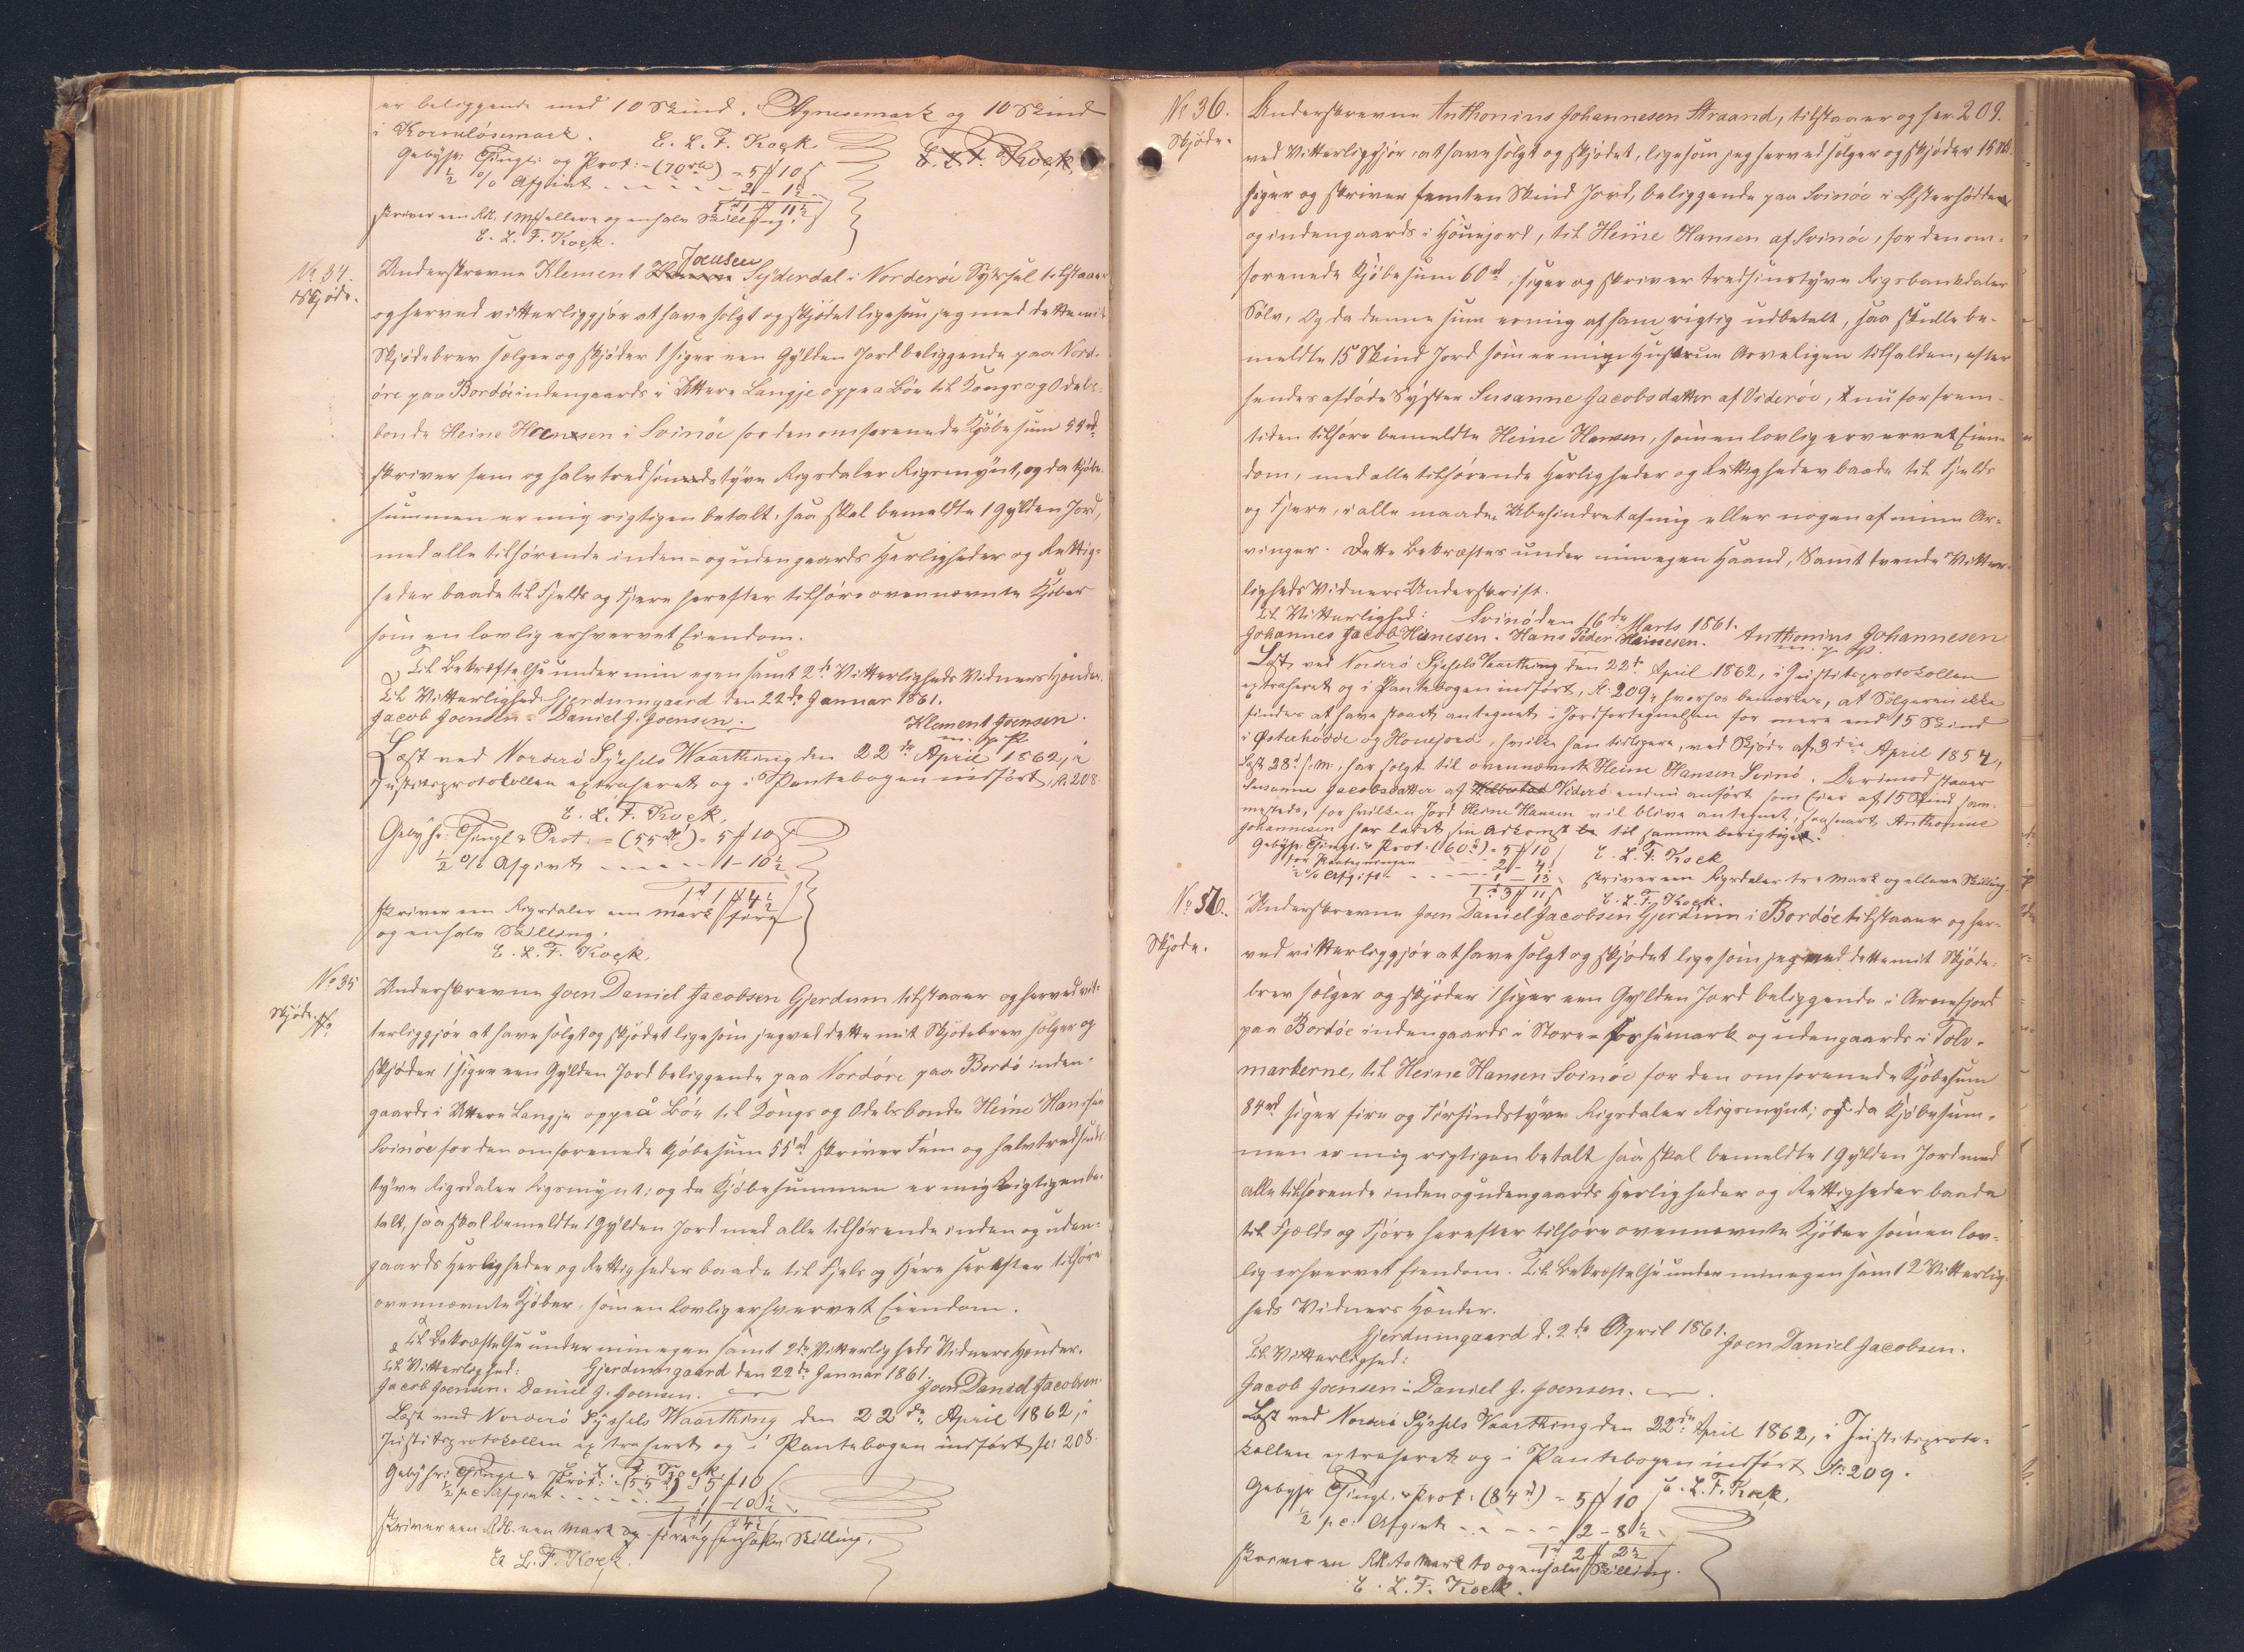 er beliggende med 10 Skind i Agnesemark og 10 Skind
i Korneløsemark. E. L. F. Kock
E. L. F. Kock
Gebyhr: Thingl: og Prot: (70 rdl) = 5 ℳ 10 ß
½ % Afgivt - - - - - 2 - 1½
1 rd 1 ℳ 11½
skriver een Rdl. 1 Mk elleve og en halv Skilling.
E. L. F. Kock.
No. 34.
Skjøde.
Underskrevne Klement Joensen Syderdal i Norderøe Syssel tilstaaer
og herved vitterliggjør at have solgt og skjødet ligesom jeg med dette mit
Skjødebrev sælger og skjøder 1 siger een Gylden Jord beliggende paa Nord-
øre paa Bordøe indengaards i Yttere Langje oppea Bøn til Kongs og Odels-
bonde Heine Hansen i Svinøe for den omforenede Kjøbesum 55 rd
skriver fem og halvtredsindstyve Rigsdaler Rigsmynt, og da Kjøbe-
summen er mig rigtigen betalt, saa skal bemeldte 1 Gylden Jord,
med alle tilhørende inden- og udengaards Herligheder og Rettig-
heder baade til Fjelds og Fjere herefter tilhøre ovennævnte Kjøber
som en lovlig erhvervet Eiendom.
Til Bekræftelse under min egen samt 2de Vitterligheds Vidners Hænder.
Til Vitterlighed: Gjerdumgaard den 22de Januar 1861.
Jacob Joensen. Daniel J. Joensen. Klement Joensen.
m. p. P.
Læst ved Norderø Syssels Waarthing den 22de April 1862, i
Justitsprotokollen extraheret og i Pantebogen indført, fl. 208
E. L. F. Kock.
Gebyhr: Thingl & Prot. = (55 rd) = 5 ℳ 10 ß
½ % Afgivt - - - - - 1 - 10½
1 rd 1 ℳ 4½
skriver een Rigsdaler een Mark fire
og en halv Skilling.
E. L. F. Kock.
No 35
Skjøde.
Underskrevne Joen Daniel Jacobsen Gjerdum tilstaaer og herved vit-
terliggjør at have solgt og skjødet ligesom jeg ved dette mit Skjødebrev sølger og
skjøder 1 siger een Gylden Jord beliggende paa Nordøre paa Bordø inden-
gaards i Yttere Langje oppeå Bön til Kongs og Odelsbonde Heine Hansen
Svinøe for den omforenede Kjøbesum 55 rd skriver Fem og halvtredsinds-
tyve Rigsdaler Rigsmynt; og da Kjøbesummen er mig Rigtigen be-
talt, saa skal bemeldte 1 Gylden Jord med alle tilhørende inden og uden-
gaards Herligheder og Rettigheder baade til Fjels og Fjere herefter tilhøre
ovennævnte Kjøber, som en lovlig erhvervet Eiendom.
Til Bekræftelse under min egen samt 2de Vitterligheds Vidners Hænder.
Til Vitterlighed: Gjerdumgaard den 22de Januar 1861.
Jacob Joensen. Daniel J. Joensen. Joen Daniel Jacobsen.
Læst ved Norderø Syssels Waarthing den 22de April 1862, i
Justitsprotokollen extraheret og i Pantebogen indført fl: 208.
E. L. F. Kock.
Gebyhr: Thingl & Prot: (55 rd) = 5 ℳ 10
½ pc. Afgivt - - - - - 1 - 10½
1 rd 1 ℳ 4½
skriver een Rdl. een Mark og fire og en halv Skilling.
E. L. F. Kock.
No 36.
Skjøde.
Underskrevne Anthonius Johannesen Straand, tilstaaer og her 209.
ved Vitterliggjør, at have solgt og skjødet, ligesom jeg herved sølger og skjøder 15 Sk
siger og skriver femten Skind Jord, beliggende paa Svinøe i Østerhødden
og indengaards i Høuejord, til Heine Hansen af Svinøe, for den om-
forenede Kjøbesum 60 rd, siger og skriver tredsindstyve Rigsbankdaler
Sølv, Og da denne sum er mig af ham rigtig udbetalt, saa skulle be-
meldte 15 Skind Jord som er min Hustrue Arveligen tilfalden, efter
hendes afdøde Syster Susanne Jacobsdatter af Viderøe, nu for frem-
tiden tilhøre bemeldte Heine Hansen, som en lovlig erverevet Eien-
dom, med alle tilhørende Herligheder og Rettigheder baade til Fjelds
og Fjere, i alle maader Ubehindret af mig eller nogen af mine Ar-
vinger. Dette bekræftes under min egen Haand, Samt tvende Vitter-
ligheds Vidners Underskrift.
Til Vitterlighed: Svinø den 16de Marts 1861.
Johannes Jacob Heinesen. Hans Peder Heinesen. Anthonius Johannesen
m. p. P.
Læst, ved Norderø Syssels Vaarthing den 22de April 1862, i Justitsprotokollen
extraheret og i Pantebogen indført, fl: 209, hvorhos bemærkes, at Sælgeren ikke
findes at have staaet antegnet i Jordfortegnelsen for mere end 15 Skind
i Østerhødde og Houejord, hvilke han tidligere, ved Skjøde af 3die April 1854,
læst 28d s. M., har solgt til ovennævnte Heine Hansen Svinø. Derimod staaer
Susanne Jacobsdatter af Viderø endnu anført som Eier af 15 Skind sam-
mesteds, for hvilken Jord Heine Hansen vil blive antegnet, saasnart Anthonius
Johannesen har ladet sin Adkomst til samme berigtige.
Gebyhr: Thingl. & Prot. (60 rd) = 5 ℳ 10 E. L. F. Kock
for Paategningen - - - 2 - 4
½ % Afgift - - - - - 1 - 13
1 rd 3 ℳ 11 ß skriver een Rigsdaler tre Mark og elleve Skilling.
E. L. F. Kock.
No 37.
Skjøde.
Underskrevne Joen Daniel Jacobsen Gjerdum i Bordøe tilstaaer og her-
ved vitterliggjør at have solgt og skjødet ligesom jeg med dette mit Skjøde-
brev sølger og skjøder 1 siger een Gylden Jord beliggende i Arnefjord
paa Bordøe indengaards i Store-Forsemark og udengaards i Tolv-
markerne, til Heine Hansen Svinøe for den omforenede Kjøbesum
84 rd siger fire og Firsindstyve Rigsdaler Rigsmynt; og da Kjøbesum-
men er mig rigtigen betalt saa skal bemeldte 1 Gylden Jord med
alle tilhørende inden og udengaards Herligheder og Rettigheder baade
til Fjelds og Fjøre herefter tilhøre ovennævnte Kjøber som en lov-
lig erhvervet Eiendom. Til Bekræftelse under min egen samt 2 Vitterlig-
heds Vidners Hænder.
Gjerdumgaard d. 2de April 1861.
Til Vitterlighed: Joen Daniel Jacobsen.
Jacob Joensen. Daniel J. Joensen.
Læst ved Norderø Syssels Vaarthing den 22de April 1862, i Justitsproto-
kollen extraheret og i Pantebogen indført fl: 209.
Gebyhr Thingl. & Prot. (84 rd) = 5 ℳ 10 ß E. L. F. Kock.
½ pc. Afgivt - - - - - 2 - 8½
1 rd 2 ℳ 2½
skriver en Rdl. to Mark to og en halv Skilling.
E. L. F. Kock.